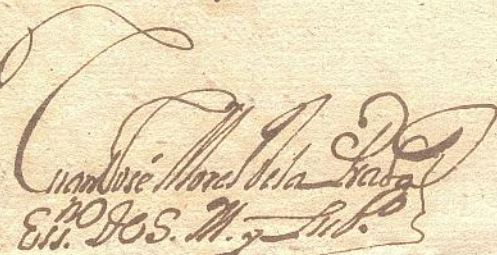 Juan José Morel de la Prada
Ess.no De S. M. y Pub.co